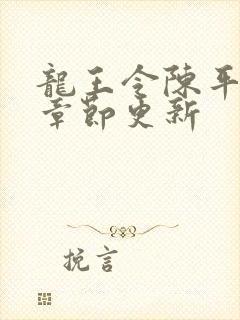 龍王令陳平
章節更新
挽言